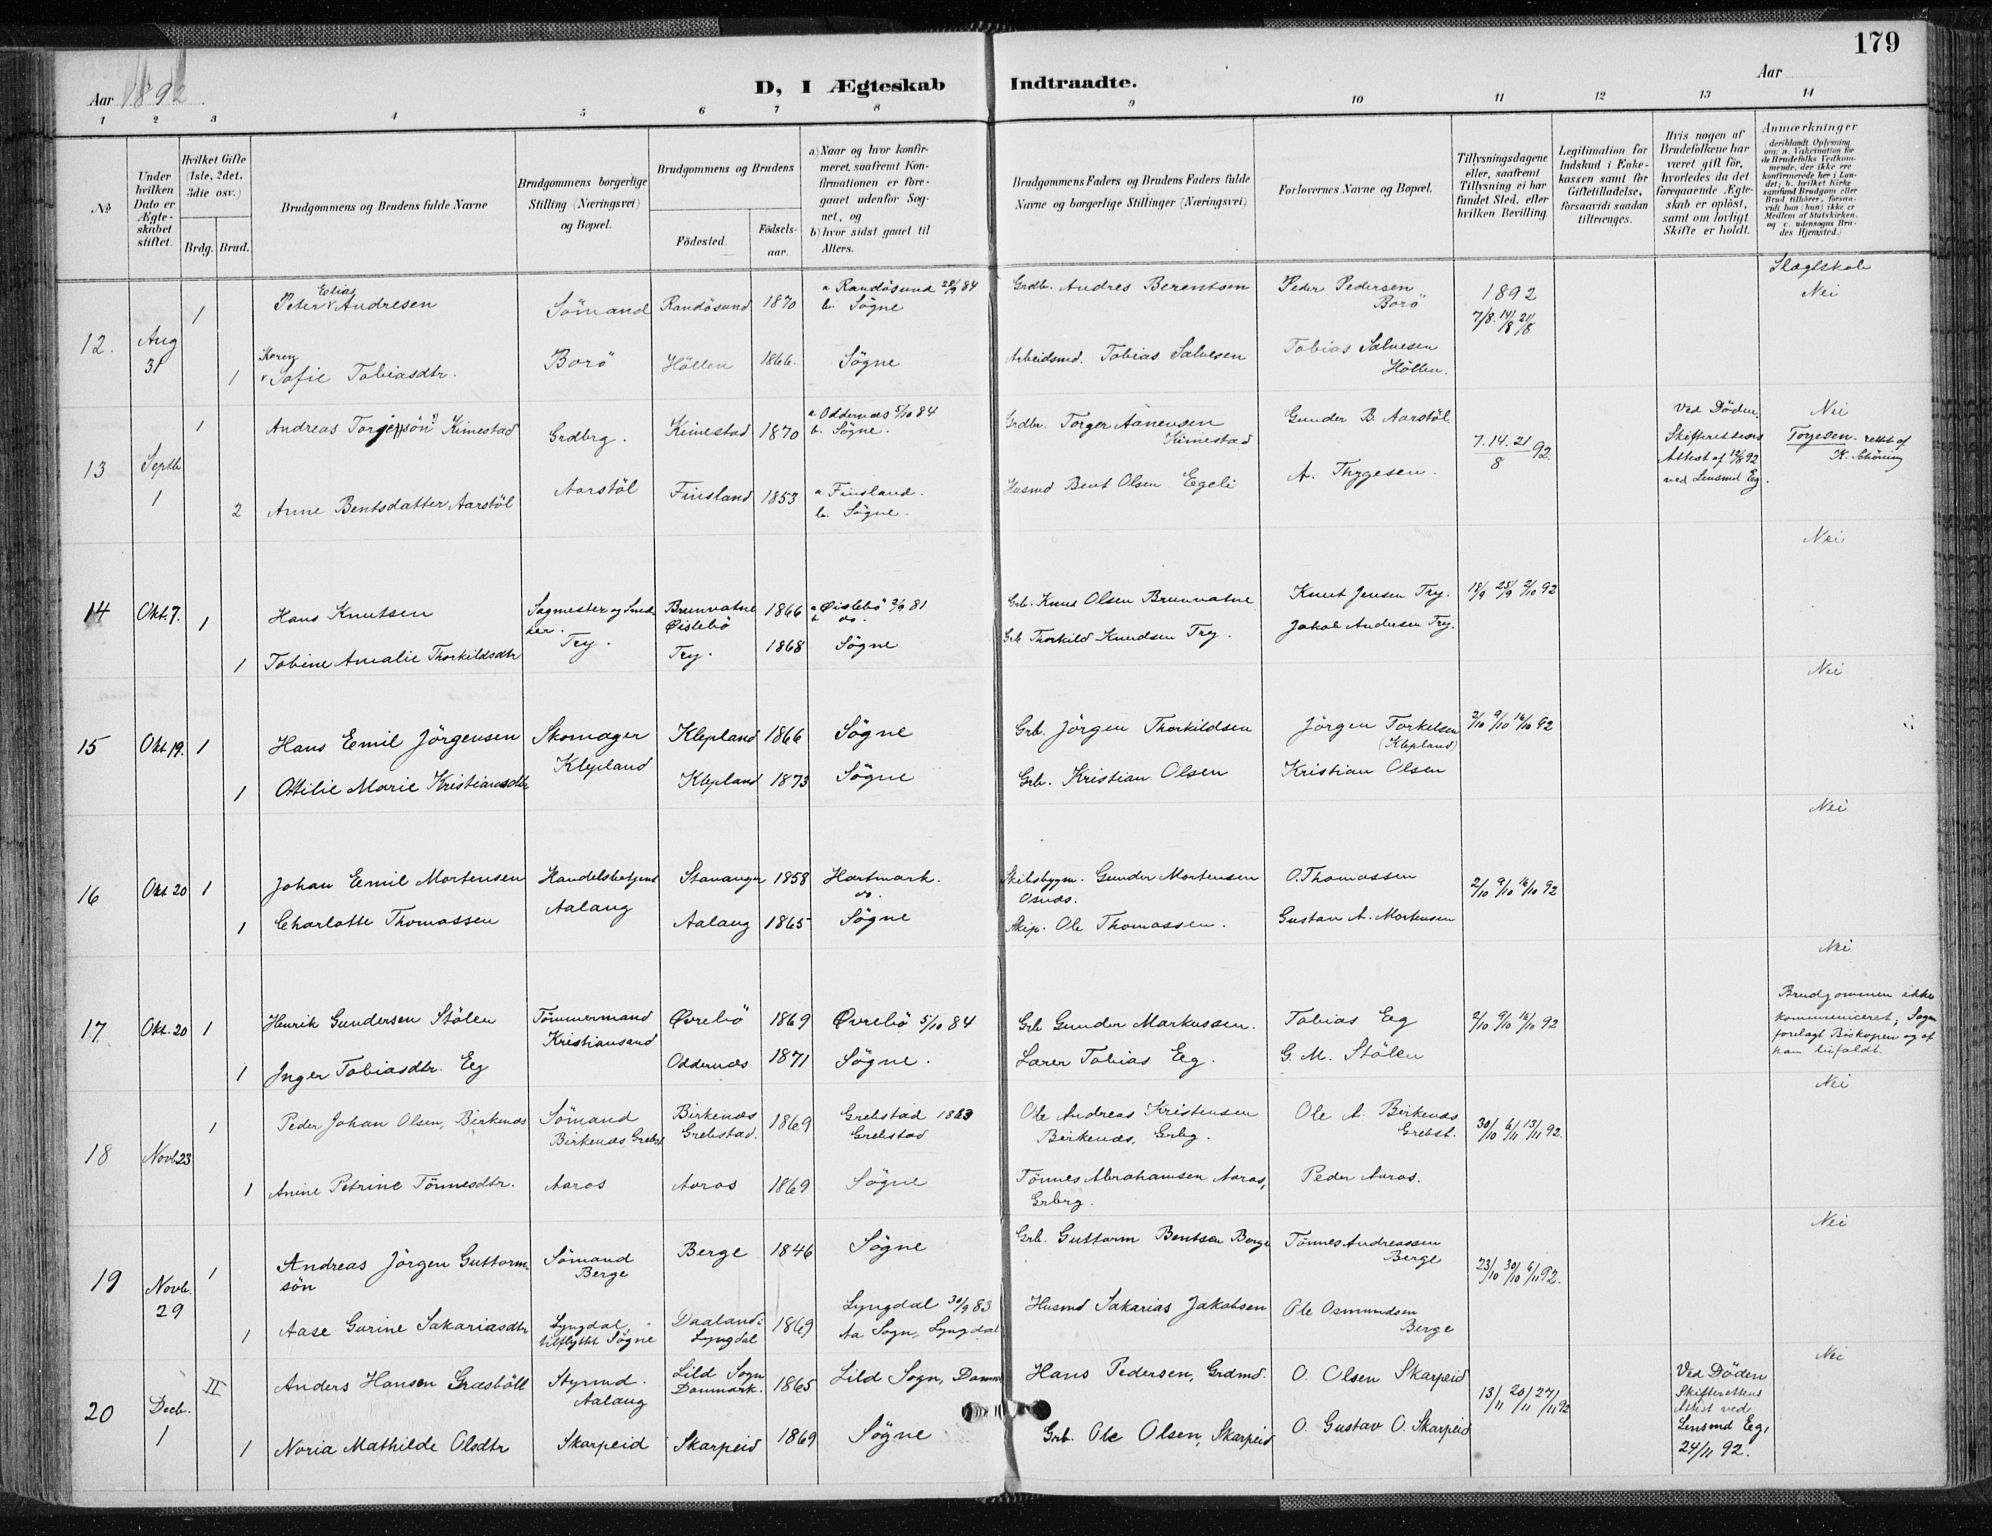 179
D, I Ægteskab Indtraadte.
Aar 1892
Aar
1 2 3 4 5 6 7 8 9 10 11 12 13 14
№
Under hvilken Dato er Ægteskabet stiftet.
Hvilket Gifte (1ste, 2det, 3die osv.)
Brdg. Brud.
Brudgommens og Brudens fulde Navne
Brudgommens borgerlige Stilling (Næringsvei) og Bopæl.
Brudgommens og Brudens
Födested. Födselsaar.
a) Naar og hvor konfirmeret, saafremt Konfirmationen er foregaaet udenfor Sognet, og
b) hvor sidst gaaet til Alters.
Brudgommens Faders og Brudens Faders fulde Navne og borgerlige Stillinger (Næringsvei)
Forlovernes Navne og Bopæl.
Tillysningsdagene eller, saafremt Tillysning ei har fundet Sted, efter hvilken Bevilling.
Legitimation for Indskud i Enkekassen samt for Giftetilladelse, forsaavidt saadan tiltrænges.
Hvis nogen af Brudefolkene har været gift för, hvorledes da det foregaaende Ægteskab er oplöst, samt om lovligt Skifte er holdt.
Anmærkninger (deriblandt Oplysning om: a. Vakcination for de Brudefolks Vedkommende, der ikke ere konfirmerede her i Landet; b. hvilket Kirkesamfund Brudgom eller Brud tilhörer, forsaavidt han (hun) ikke er Medlem af Statskirken, og c. udensogns Brudes Hjemsted.)
12. Aug 31
1 Peter Elias Andresen Sömand Randösund 1870 a Randösund 28/9 84 b. Sögne Grdbr. Andres Berentsen Peder Pedersen Borö 1892 7/8. 14/8 21/8 Slægtskab Nei
1 Karen Sofie Tobiasdtr. Borö Höllen 1866. Sögne Arbeidsmd. Tobias Salvesen Tobias Salvesen Höllen.
13 Septb 1
1 Andreas Kimestad Grdbrg. Kimestad 1870 a Oddernæs 5/10 84 b. Sögne. Grdbr. Torger Aanensen Kimestad Gunder B. Aarstöl 7. 14. 21/8 92. Ved Döden, Skifterettens Attest af 12/8 92 ved Lensmd Eg. Nei Torgesen. rettet af K. Schöning
2 Anne Bentsdatter Aarstöl Aarstöl Finsland 1853 a Finsland. b. Sögne. Husmd Bent Olsen Egeli A. Thygesen.
14 Okt. 7. Nei
1 Hans Knutsen Sagmester og Snedker. Brunvatne Øislebö 1866 a Øislebö 2/9 81 b do. Grb. Knud Olsen Brunvatne Knut Jensen Try. 18/9 25/9 2/10 92
1 Tobine Amalie Thorkildsdtr Try. Try. 1868 Sögne Grb Thorkild Knudsen Try. Jakob Andersen Try.
15 Okt 19. Nei
1 Hans Emil Jörgensen Skomager Klepland 1866 Sögne Grb. Jörgen Thorkildsen Jörgen Torkelsen (Klepland) 2/10 9/10 16/10 92
1 Ottilie Marie Kristiansdtr Klepland Klepland 1873 Sögne Grb. Kristian Olsen Kristian Olsen
16 Okt 20 Nei
1 Johan Emil Mortensen Handelsbetjent Stavanger 1858 Hartmark. do. Skibsbygm. Gunder Mortensen Osnæs. O. Thomassen 2/10 9/10 16/10 92
1 Charlotte Thomassen Aalaug Aalaug 1865 Sögne Skip. Ole Thomassen. Gustav A. Mortensen
17 Okt. 20 Nei
1 Henrik Gundersen Stölen Tömmermand Øvrebö 1869 Øvrebö 5/10 84 Grb Gunder Markussen. Tobias Eg 2/10 9/10 16/10 92 Brudgommen ikke kommuniceret; Sagen forelagt Biskopen og af ham bifaldt.
1 Inger Tobiasdtr. Eg Kristiansand Oddernæs 1871 Sögne. Lærer Tobias Eg. G. M. Stölen
18 Novb 23 Nei
1 Peder Johan Olsen, Birkenæs Sömand Birkenæs Grebst Birkenæs Grebstad. 1869 Grebstad 1883 Grebstad Ole Andreas Kristensen Birkenæs, Grbrg. Ole A. Birkenæs Grebst. 30/10 6/11 13/11 92.
1 Anine Petrine Tönnesdtr. Aaros Aaros 1869 Sögne Tönnes Abrahamsen Aaros, Grbrg. Peder Aaros.
19 Novb. 29 Nei
1 Andreas Jörgen Guttormsön Sömand Berge Berge 1846 Sögne Grb. Guttorm Bentsen Berge Tönnes Andreassen Berge 23/10 30/10 6/11 92.
1 Aase Gurine Sakariasdtr Lyngdal, tilflyttet Sögne Daaland i Lyngdal 1869 Lyngdal 30/9 83 Aa Sogn, Lyngdal Husmd Sakarias Jakobsen Ole Osmundsen Berge
20 Decb. 1 Nei
II Anders Hansen Græsböll Styrmd. Aalaug Lild Sogn Danmark. 1865 Lild Sogn, Danm Hans Pedersen, Grdmd. O. Olsen Skarpeid 13/11 20/11 27/11 92 Ved Döden Skifterettens Attest ved Lensmd Eg, 24/11 92.
1 Noria Mathilde Olsdtr Skarpeid Skarpeid 1869 Sögne Grb. Ole Olsen, Skarpeid O. Gustav O. Skarpeid